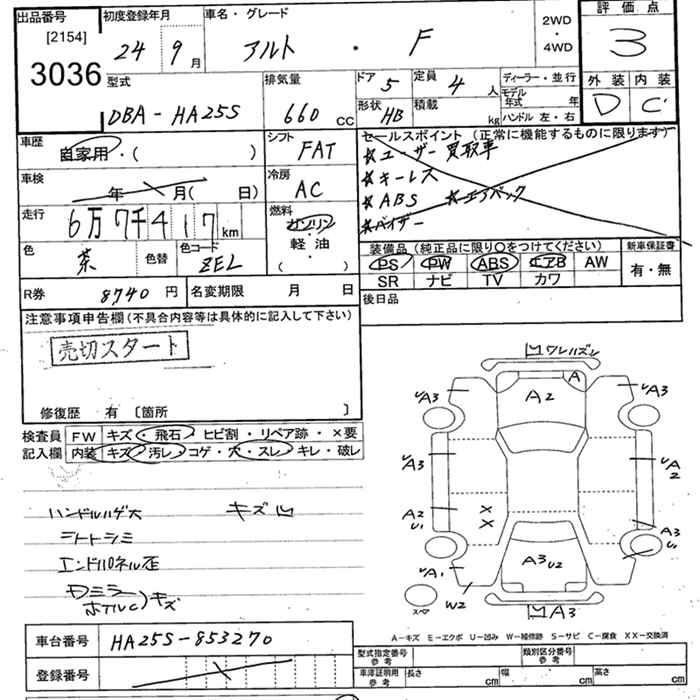 出品番号
[2154]
3036
初度登録年月
24 9月
車名・グレード
アルト ・ F
2WD
・
4WD
評価点
3
外装 内装
D C
型式
DBA-HA25S
排気量
660 CC
ドア 5
形状 HB
定員 4 人
積載 kg
ディーラー・並行
モデル年式 年
ハンドル 左・右
車歴
自家用・( )
シフト
FAT
セールスポイント(正常に機能するものに限ります)
☆ユーザー買取車
☆キーレス
☆ABS ☆エアバック
☆バイザー
車検
年 月( 日)
冷房
AC
走行
6万7千417km
燃料
ガソリン
・
軽・油
( )
色
茶
色替
色コード
ZEL
装備品(純正品に限り○をつけてください)
PS PW ABS エアB AW
SR ナビ TV カワ
新車保証書
有・無
R券 8740円
名変期限 月 日
後日品
注意事項申告欄(不具合内容等は具体的に記入して下さい)
売切スタート
修復歴 有 〔箇所 〕
検査員記入欄
FW キズ・飛石・ヒビ割・リペア跡・×要
内装 キズ・汚レ・コゲ・穴・スレ・キレ・破レ
ハンドルハゲ大 キズ凹
シートシミ
エンドパネル歪
Dミラー
ホイルC)キズ
凹ワレハズレ
A
A2
A3
A3
A3
A2
A2
U1
A3
U1
××
A3 U2
A1
W2
スペア
凹A3
A-キズ E-エクボ U-凹み W-補修跡 S-サビ C-腐食 XX-交換済
車台番号 HA25S-853270
登録番号
型式指定番号 参考
類別区分番号 参考
車庫証明用 参考
長さ cm 幅 cm 高さ cm